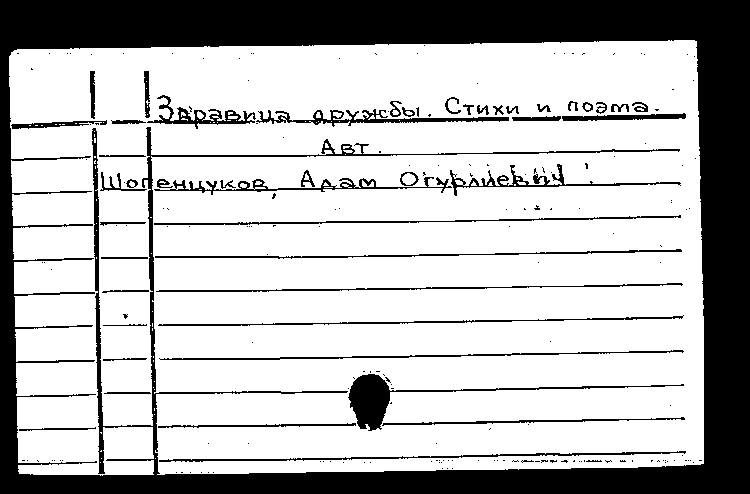 Здравица дружбы. Стихи и поэма.
Авт.
Шогенцуков, Адам Огурлиевич.